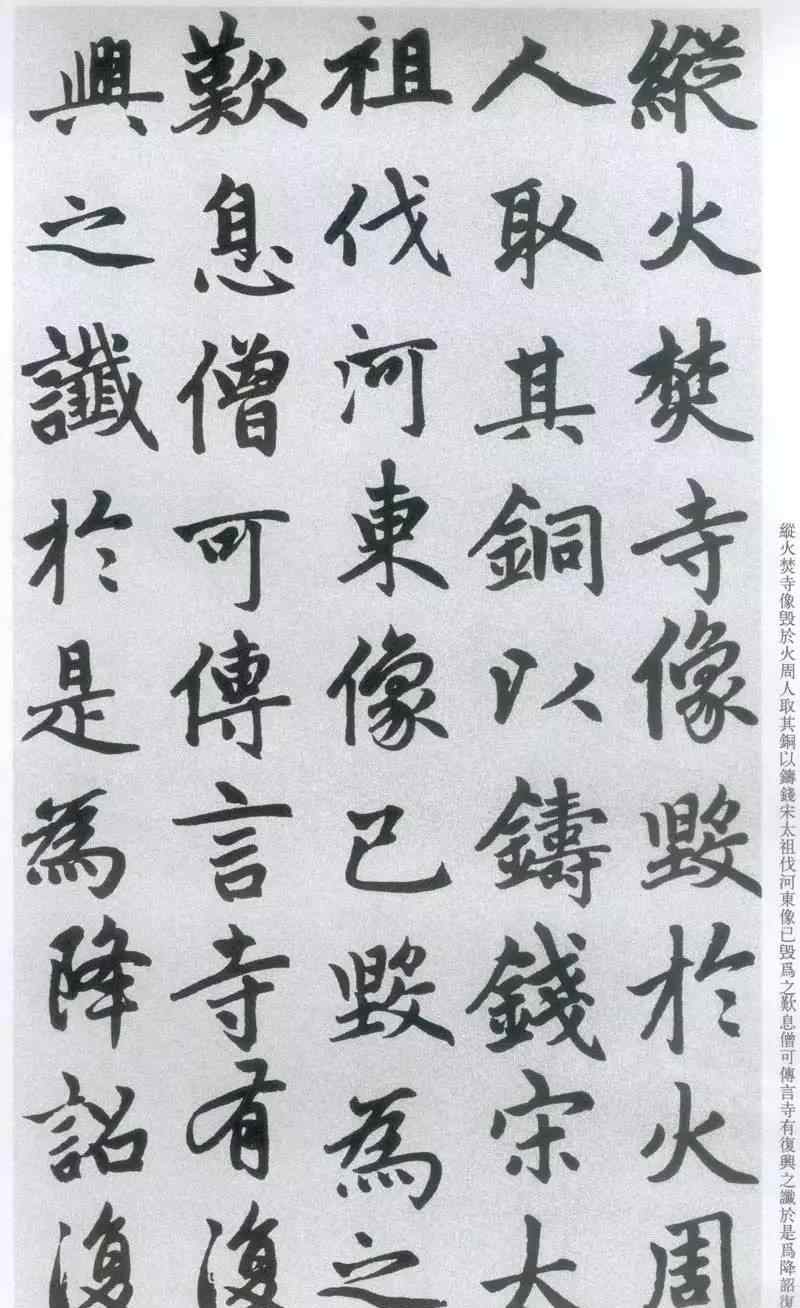 縱火焚寺像毀於火周
人取其銅以鑄錢宋太
祖伐河東像已毀為之
歎息僧可傳言寺有復
興之讖於是為降詔復
縱火焚寺像毀於火周人取其銅以鑄錢宋太祖伐河東像已毀爲之歎息僧可傳言寺有復興之讖於是爲降詔復